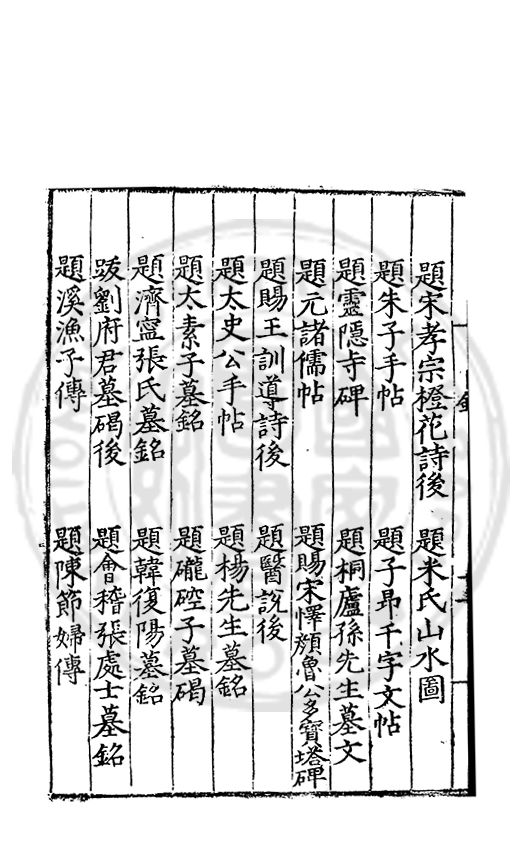 題宋孝宗橙花詩後　題米氏山水圖
題朱子手帖　題子昂千字文帖
題靈隱寺碑　題桐廬孫先生墓文
題元諸儒帖　題賜宋懌顏魯公多寶塔碑
題賜王訓導詩後　題醫說後
題太史公手帖　題楊先生墓銘
題太素子墓銘　題礲硿子墓碣
題濟寧張氏墓銘　題韓復陽墓銘
跋劉府君墓碣後　題會稽張處士墓銘
題溪漁子傳　題陳節婦傳